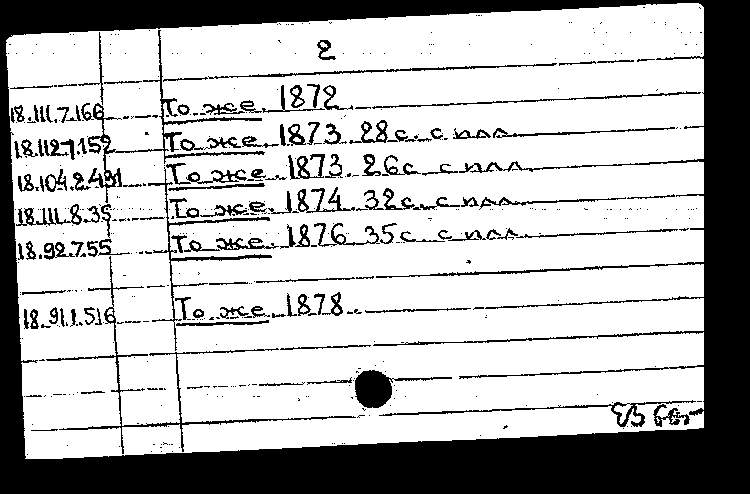 2
18.111.7.166 То же. 1872.
18.112.7.152 То же. 1873. 28 с. с илл.
18.104.2.491 То же. 1873. 26 с. с илл.
18.111.8.35 То же. 1874. 32 с. с илл.
18.92.7.55 То же. 1876. 35 с. с илл.
18.91.1.516 То же. 1878.